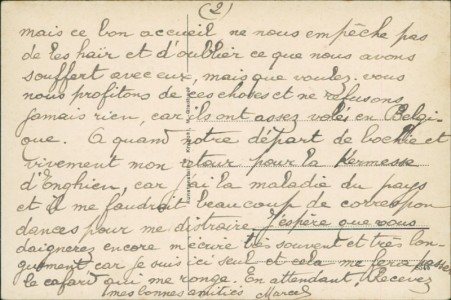 (2)
mais ce bon accueil ne nous empêche pas
de les haïr et d'oublier ce que nous avons
souffert avec eux, mais que voulez-vous
nous profitons de ces choses et ne refusons
jamais rien, car ils ont assez volés en Belgi-
que. A quand notre départ de bochie et
vivement mon retour pour la Kermesse
d'Enghien, car j'ai la maladie du pays
et il me faudrait beaucoup de correspon
dances pour me distraire. J'espère que vous
daignerez encore m'écrire très souvent et très lon-
guement car je suis ici seul et cela me fera passer
le cafard qui me ronge. En attendant, Recevez
mes bonnes amitiés Marcel